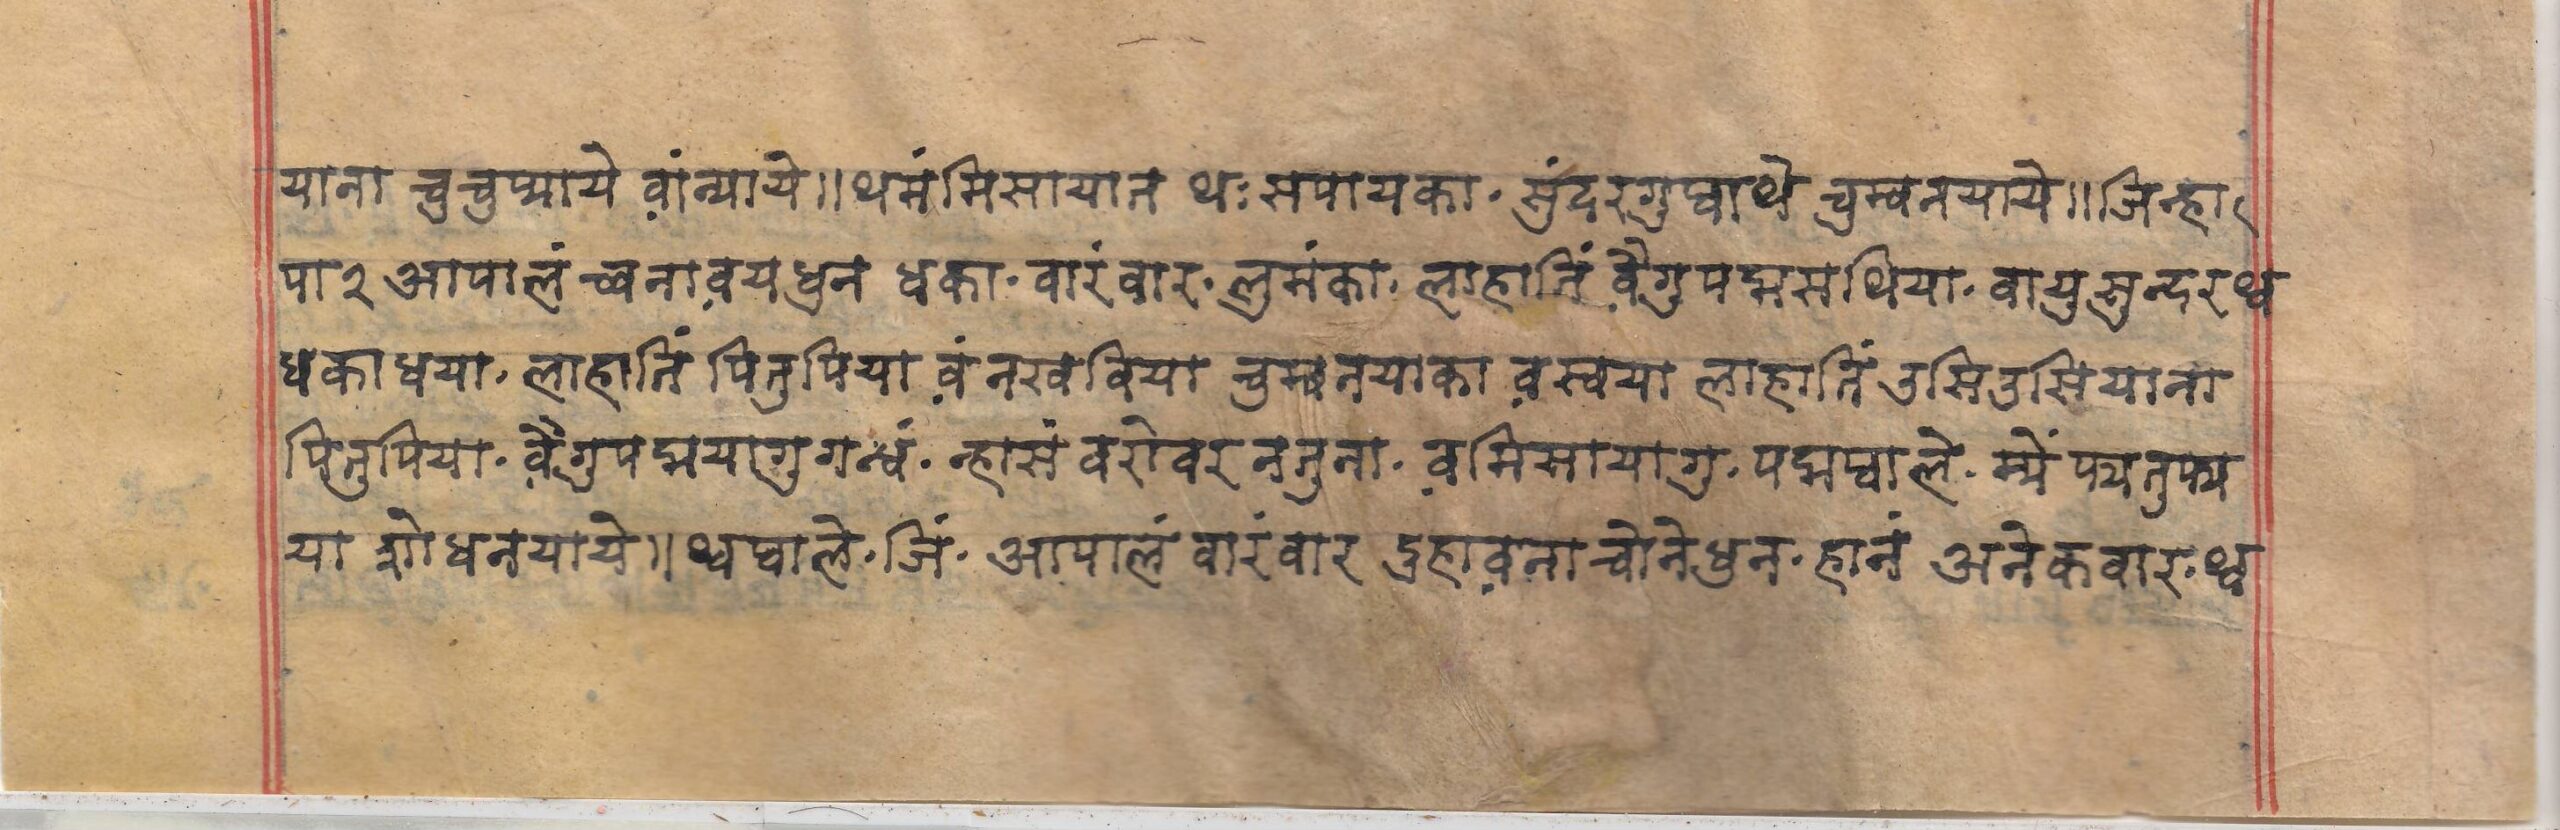 याना चुचुप्याये वा़ंन्याये॥थमंमिसायान थःसपायका· सुंदरगुप्वाथे चुम्वनयाये॥जिन्हा
पा२ आपालं च्वनाव़यधुन धका· वारंवार· लुमंका· लाहातिं व़ैगुपद्मसथिया· वायुसुन्दरथ्व
धकाधया· लाहातिं पितुपिया व़ंनखवविया चुम्वनयाका व़स्वया लाहातिं उसिउसियाना
पितुपिया· व़ैंगुपद्मयागुगन्धं· न्हासं वरोवरनतुना· व़मिसायागु· पद्मप्वाले· म्यें प्यतुप्य
या शोधनयाये॥थ्वप्वाले· जिं· आपालं वारंवार दुहाव़नाचोनेधुन· हानं अनेकवार· थ्व